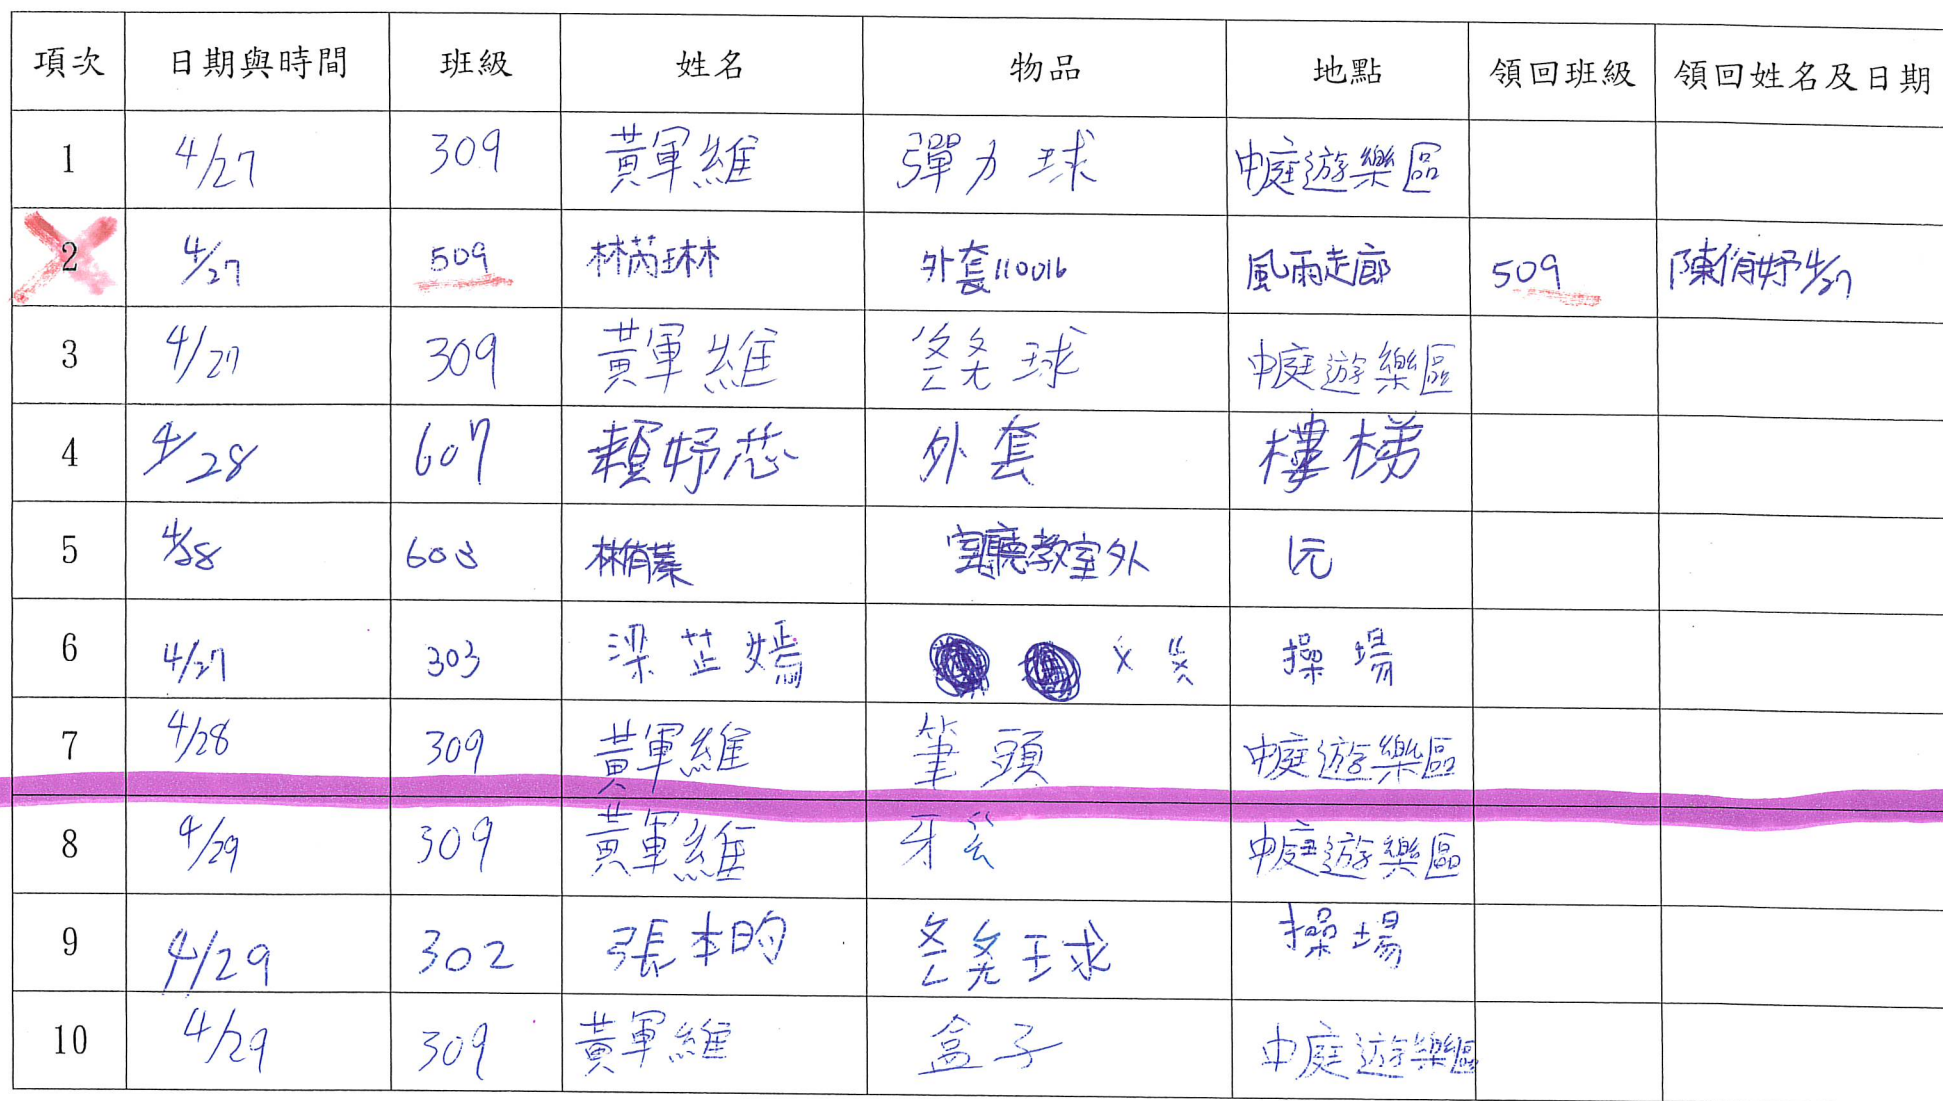 項次 日期與時間 班級 姓名 物品 地點 領回班級 領回姓名及日期
1 4/27 309 黃軍維 彈力球 中庭遊樂區
2 4/27 509 林芮琳 外套110016 風雨走廊 509 陳俏妤4/27
3 4/27 309 黃軍維 球 中庭遊樂區
4 4/28 607 賴妤芯 外套 樓梯
5 4/28 603 林侑蓁 視聽教室外 1元
6 4/27 303 梁芷嫣 操場
7 4/28 309 黃軍維 筆頭 中庭遊樂區
8 4/29 309 黃軍維 牙 中庭遊樂區
9 4/29 302 張本昀 球 操場
10 4/29 309 黃軍維 盒子 中庭遊樂區